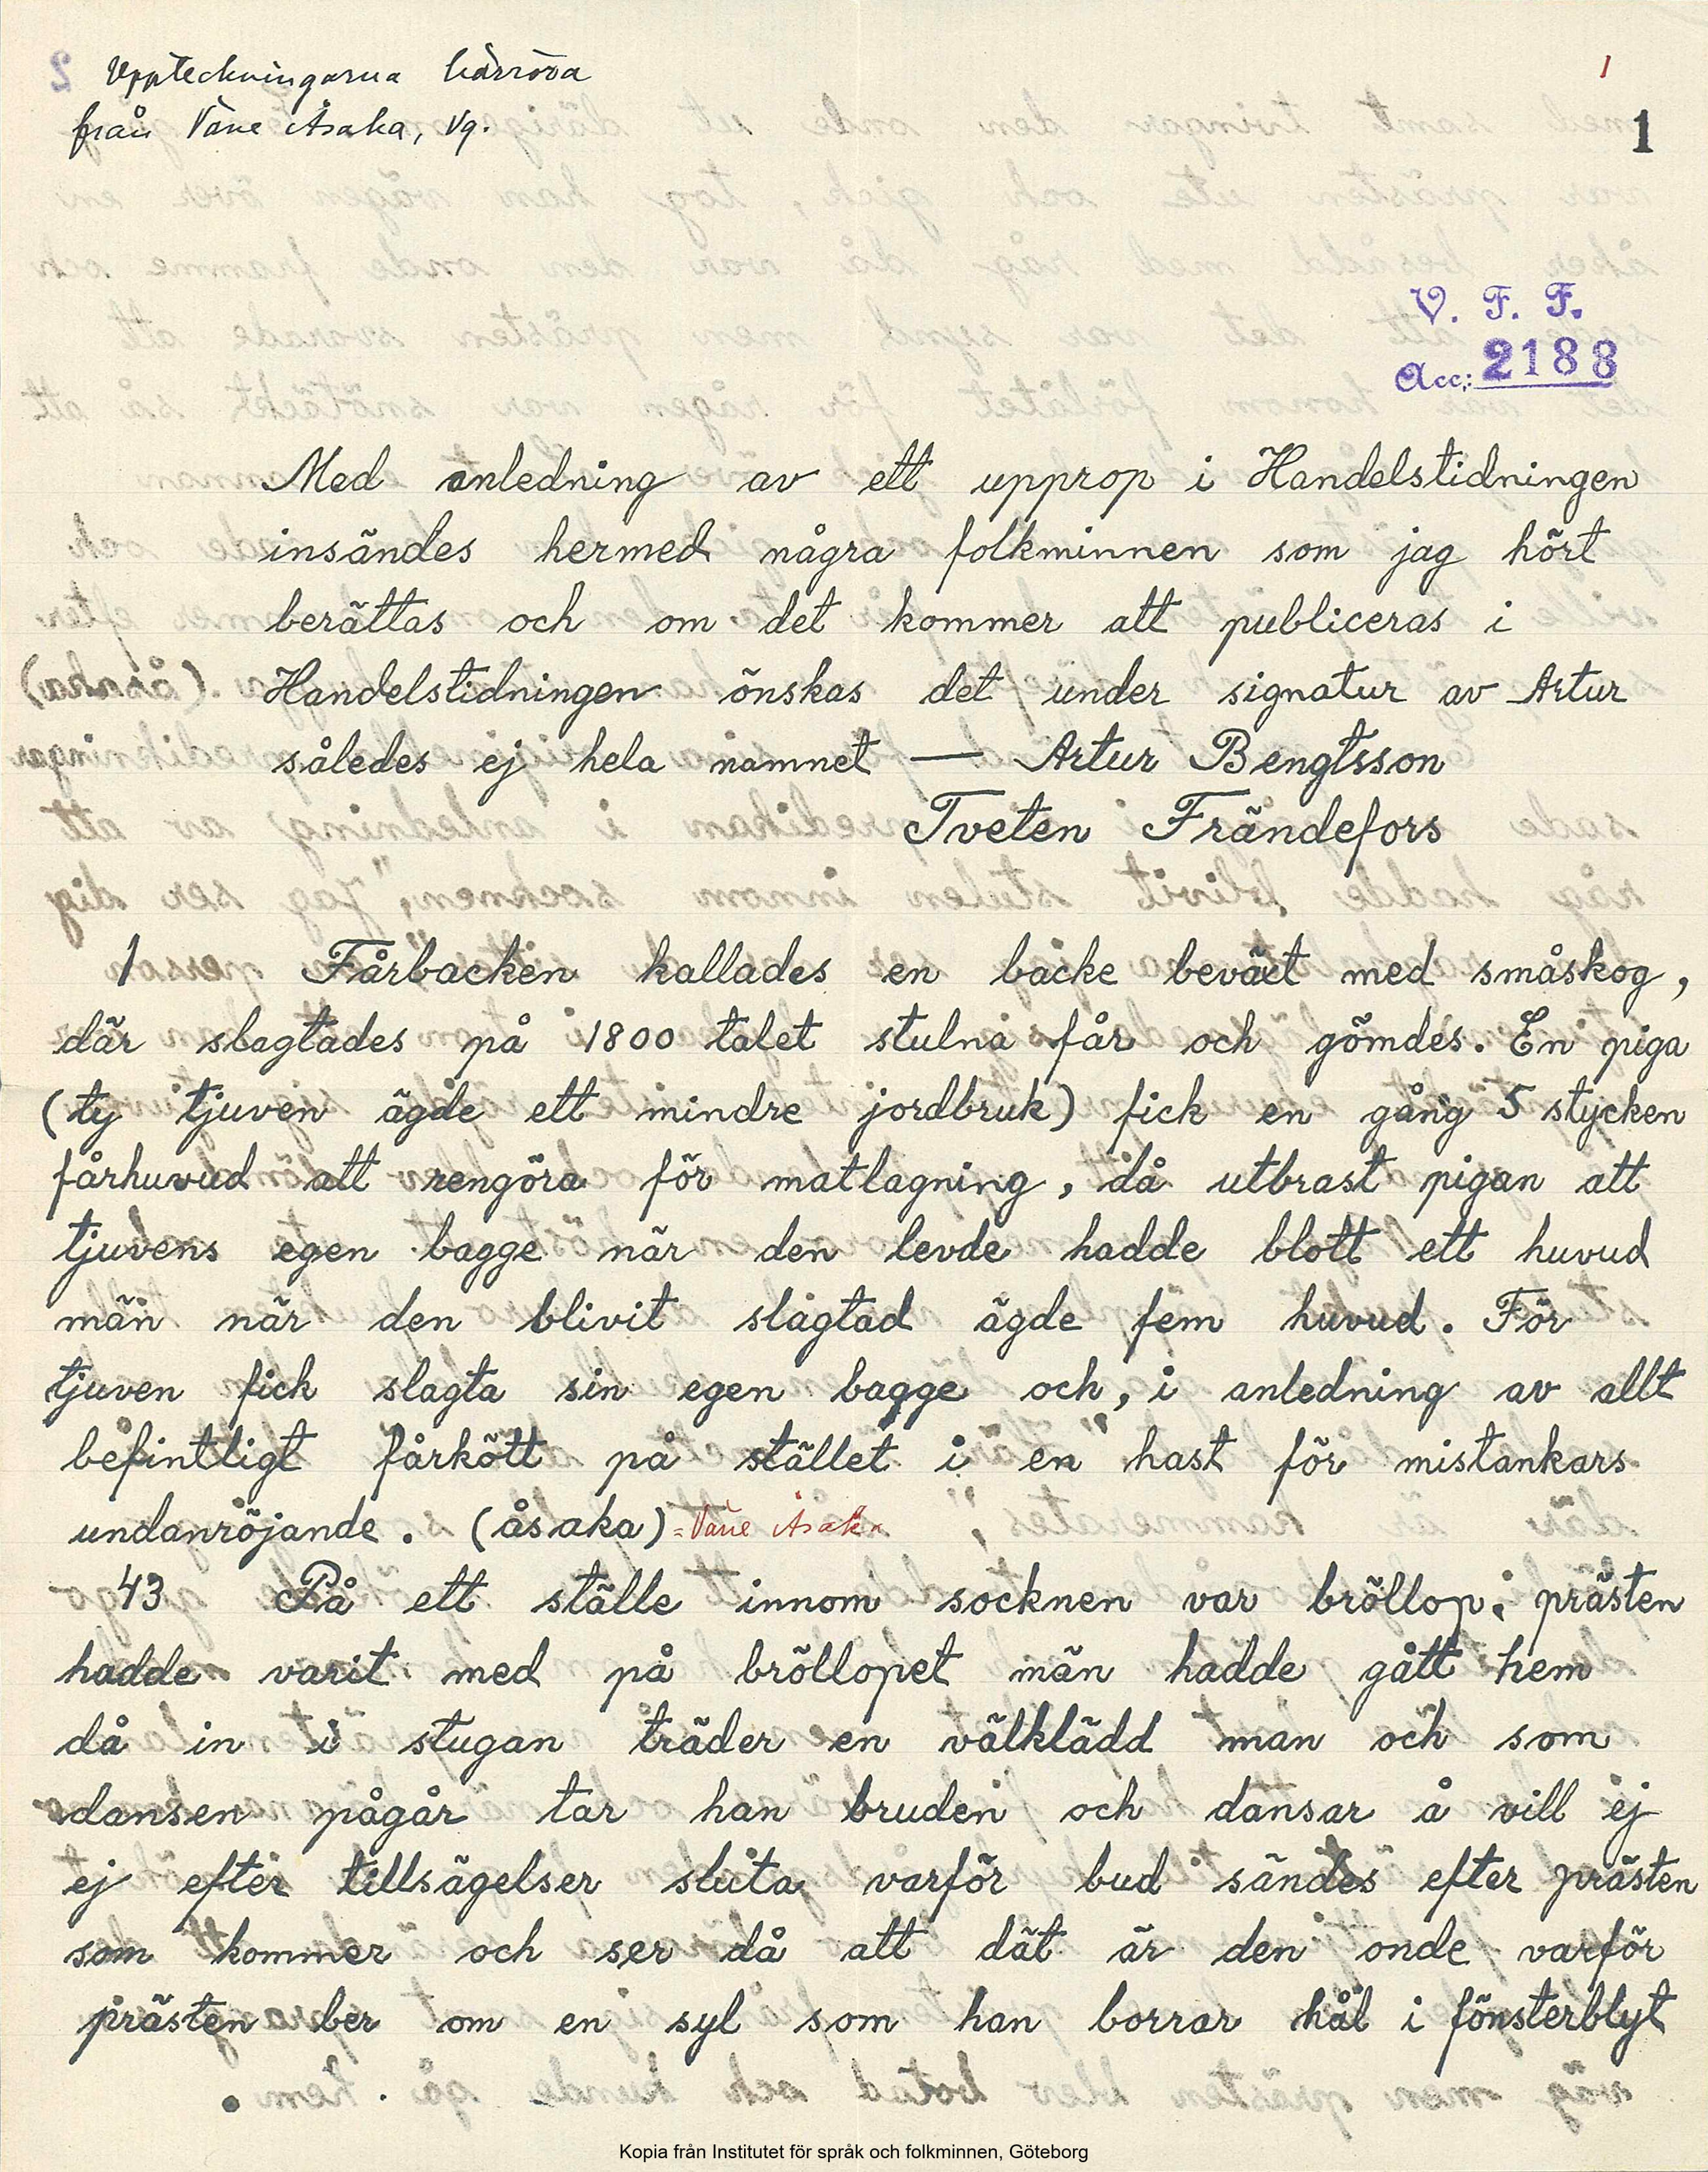 Uppteckningarna härröra
från Väne Åsaka, Vg.
1
1
V. F. F.
Acc: 2188
Med anledning av ett upprop i Handelstidningen
insändes hermed några folkminnen som jag hört
berättas och om det kommer att publiceras i
Handelstidningen önskas det under signatur av Artur
således ej hela namnet — Artur Bengtsson
Tveten Frändefors
1 Fårbacken kallades en backe beväxt med småskog,
där slagtades på 1800 talet stulna får och gömdes. En piga
(ty tjuven ägde ett mindre jordbruk) fick en gång 5 stycken
fårhuvud att rengöra för matlagning, då utbrast pigan att
tjuvens egen bagge när den levde hadde blott ett huvud
män när den blivit slagtad ägde fem huvud. För
tjuven fick slagta sin egen bagge och, i anledning av allt
befintligt fårkött på stället i en hast för mistankars
undanröjande. (åsaka) = Väne Åsaka
43 På ett ställe innom socknen var bröllop; prästen
hadde varit med på bröllopet män hadde gått hem
då in i stugan träder en välklädd man och som
dansen pågår tar han bruden och dansar å vill ej
ej efter tillsägelser sluta varför bud sändes efter prästen
som kommer och ser då att dät är den onde varför
prästen ber om en syl som han borrar hål i fönsterblyt
Kopia från Institutet för språk och folkminnen, Göteborg